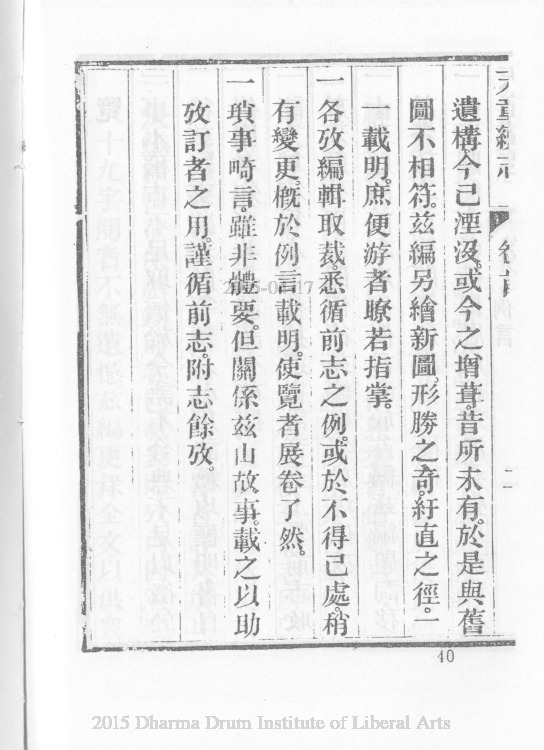 天童續志 卷首 二
遺構。今已湮沒。或今之增葺。昔所未有。於是與舊
圖不相符。茲編另繪新圖。形勝之奇。紆直之徑。一
一載明。庶便游者瞭若指掌。
一各攷編輯取裁。悉循前志之例。或於不得已處。稍
有變更。槪於例言載明。使覽者展卷了然。
一瑣事畸言。雖非體要。但關係茲山故事。載之以助
攷訂者之用。謹循前志。附志餘攷。
40
2015 Dharma Drum Institute of Liberal Arts